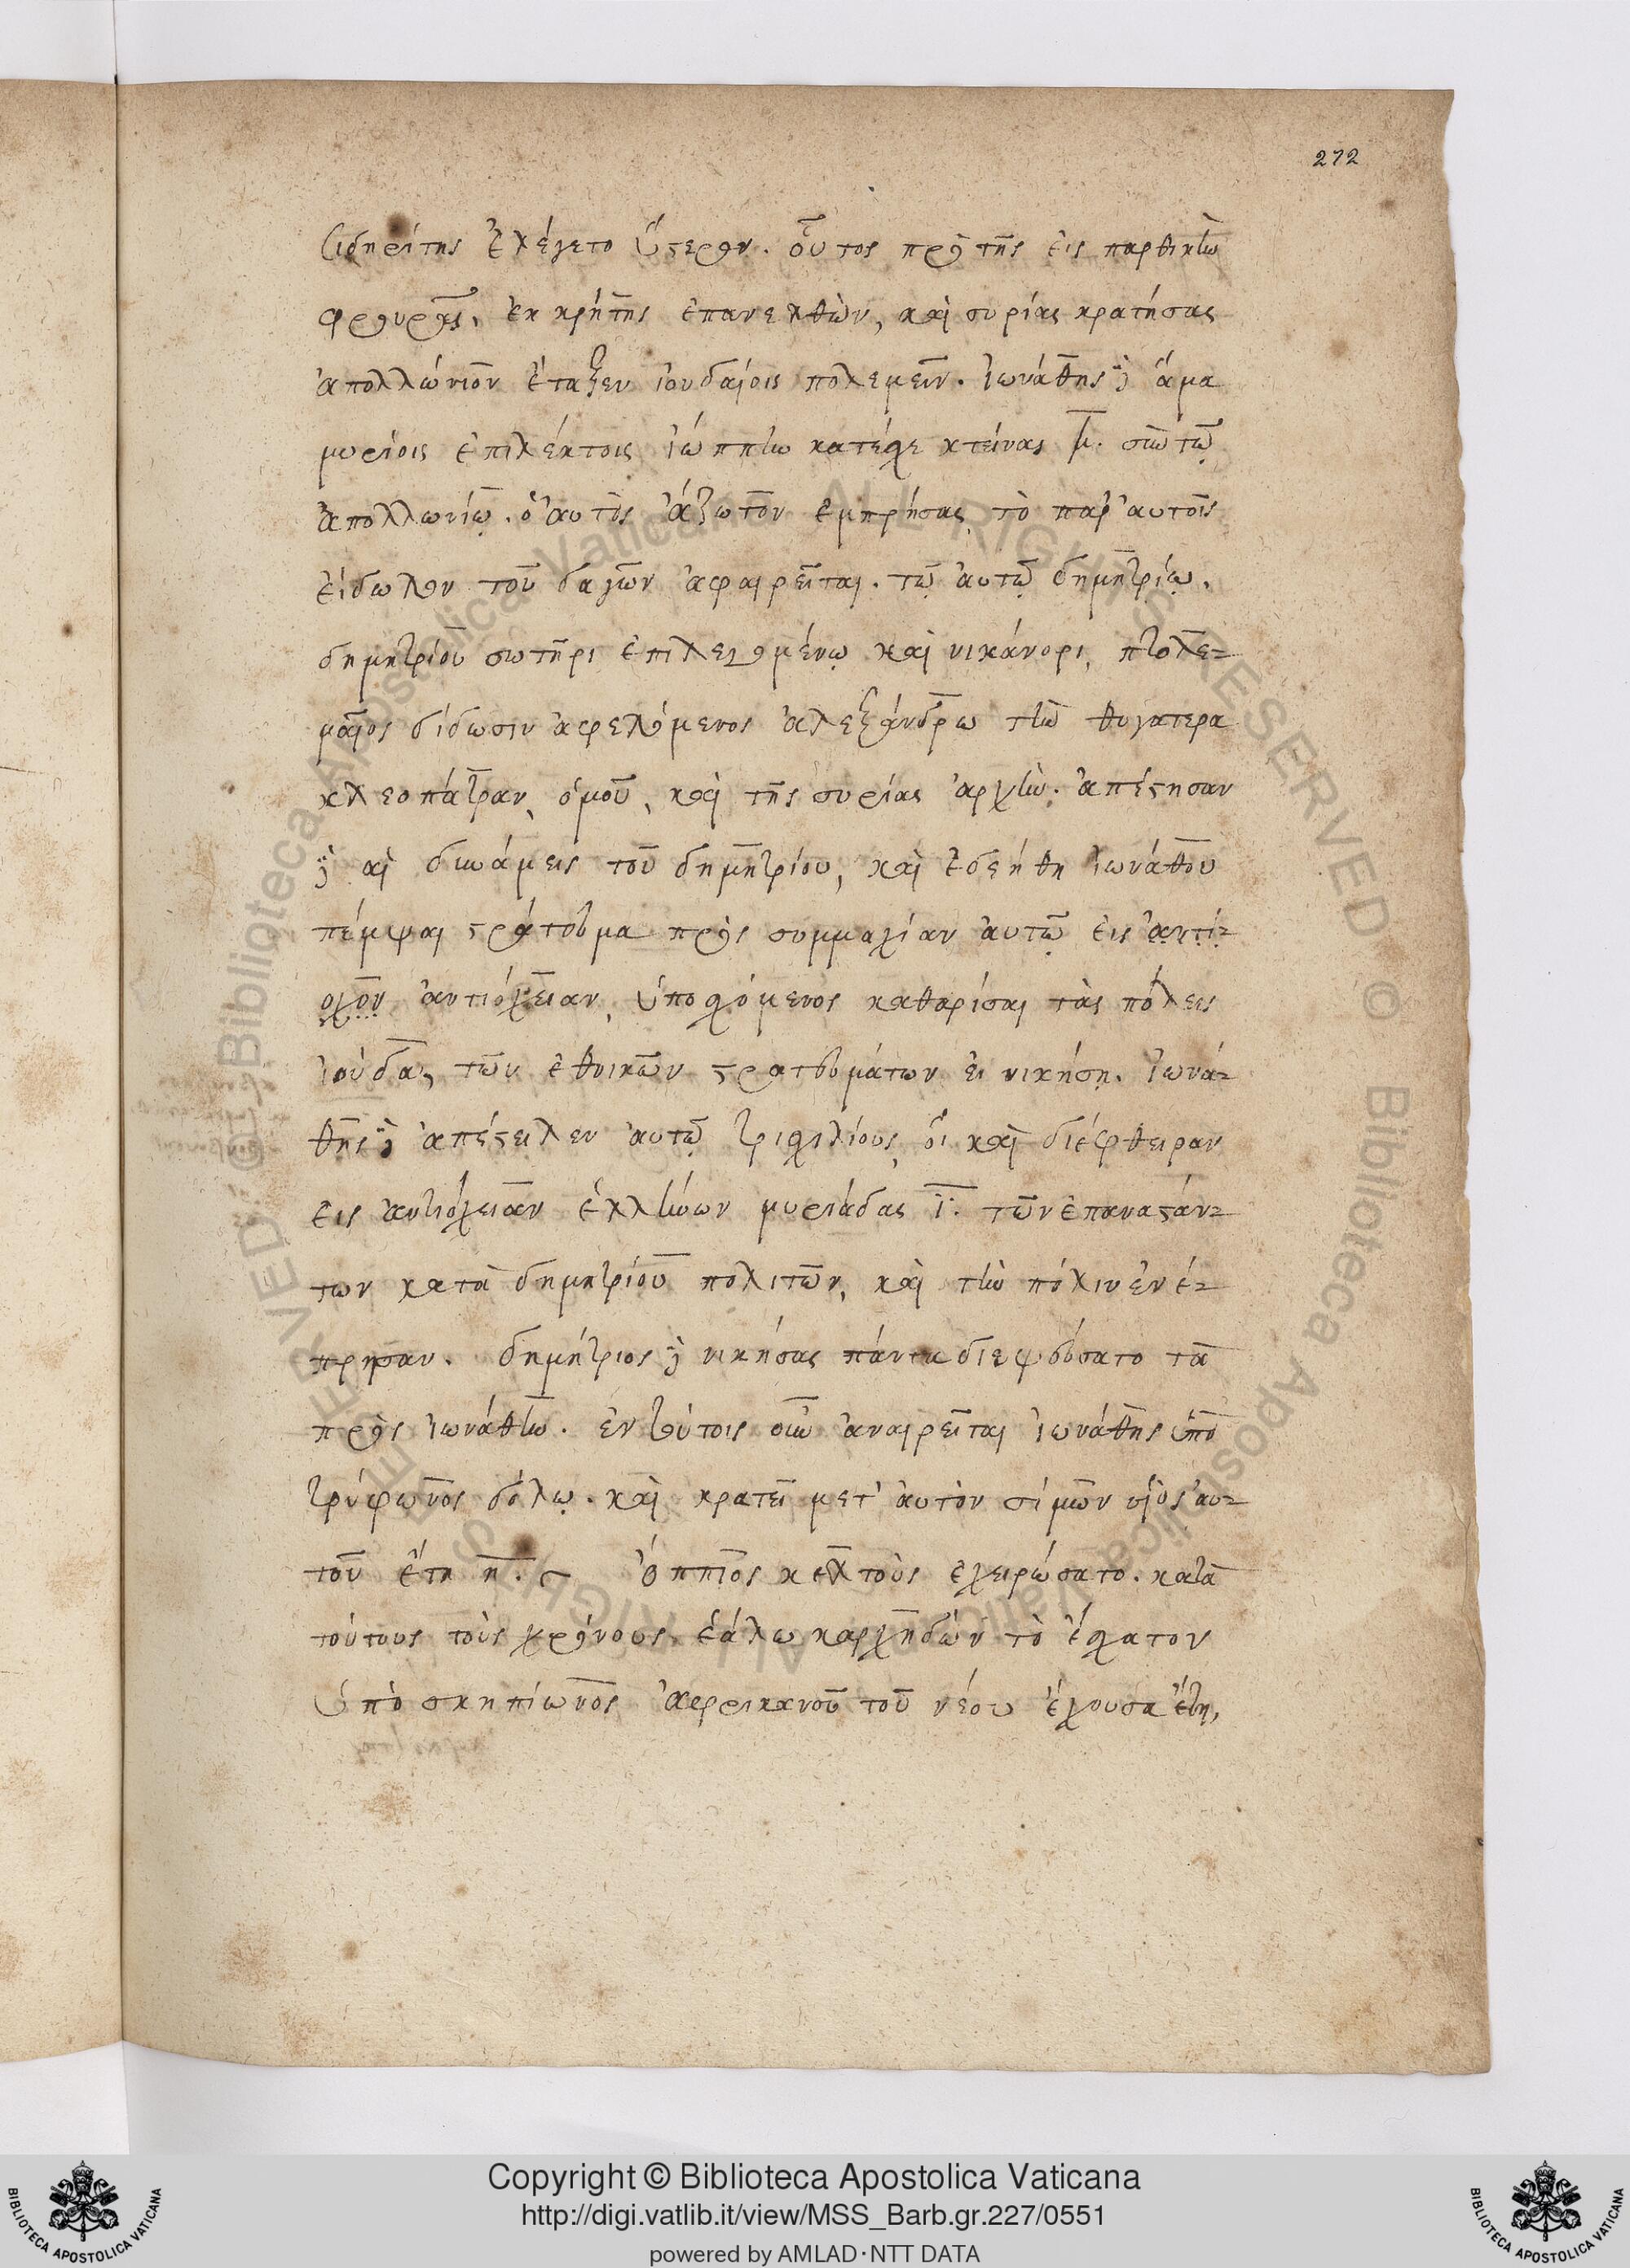 272
σιδηρίτης ἐλέγετο ὕστερον. οὗτος πρὸ τῆς εἰς παρθικὴν
φρουρᾶς, ἐκ κρήτης ἐπανελθὼν, καὶ συρίας κρατήσας
ἀπολλώνιον ἔταξεν ἰουδαίοις πολεμεῖν. ἰωνάθης δὲ ἅμα
μυρίοις ἐπιλέκτοις ἰώππην κατέσχε κτείνας μ̅. σὺν τῶ
ἀπολλωνίῳ. ὁ αὐτὸς ἄζωτον ἐμπρήσας τὸ παρ' αὐτοῖς
εἴδωλον τοῦ δαγὼν ἀφαιρεῖται. τῷ αὐτῷ δημητρίῳ.
δημητρίου σωτῆρι ἐπιλεγομένῳ καὶ νικάνορι, πτολε-
μαῖος δίδωσιν ἀφελόμενος ἀλεξάνδρω τὴν θυγατερα
κλεοπάτραν, ὁμοῦ, καὶ τῆς συρίας ἀρχὴν. ἀπέστησαν
δὲ αἱ δυνάμεις τοῦ δημητρίου, καὶ ἐδεήθη ἰωνάθου
πέμψαι στράτευμα πρὸς συμμαχίαν αὐτῷ εἰς ἀντί-
οχον ἀντιόχειαν, ὑποσχόμενος καθαρίσαι τὰς πόλεις
ἰούδα, τῶν ἐθνικῶν στρατευμάτων εἰ νικήσῃ. ἰωνά-
θης δὲ ἀπέστειλεν αὐτῷ τρισχιλίους, οἳ καὶ διέφθειραν
εἰς ἀντιόχειαν ἑλλήνων μυριάδας ι̅. τῶν ἐπαναστάν-
των κατὰ δημητρίου πολιτῶν, καὶ τὴν πόλιν ἐνέ-
πρησαν. δημήτριος δὲ νικήσας πάντα διεψεύσατο τὰ
πρὸς ἰωνάθην. ἐν τούτοις οὖν ἀναιρεῖται ἰωνάθης ὑπὸ
τρύφωνος δόλῳ. καὶ κρατεῖ μετ' αὐτὸν σίμων υἱὸς αὐ-
τοῦ ἔτη η̅. ὄππιος κελτοὺς ἐχειρώσατο. κατὰ
τούτους τοὺς χρόνους ἑάλω καρχηδὼν τὸ ἔσχατον
ὑπὸ σκηπίωνος ἀφρικανοῦ τοῦ νέου ἔχουσα ἔτη,
© Biblioteca Apostolica Vaticana ALL RIGHTS RESERVED © Biblioteca Apostolica Vaticana ALL RIGHTS RESERVED
Copyright © Biblioteca Apostolica Vaticana
http://digi.vatlib.it/view/MSS_Barb.gr.227/0551
powered by AMLAD·NTT DATA
BIBLIOTECA APOSTOLICA VATICANA
BIBLIOTECA APOSTOLICA VATICANA